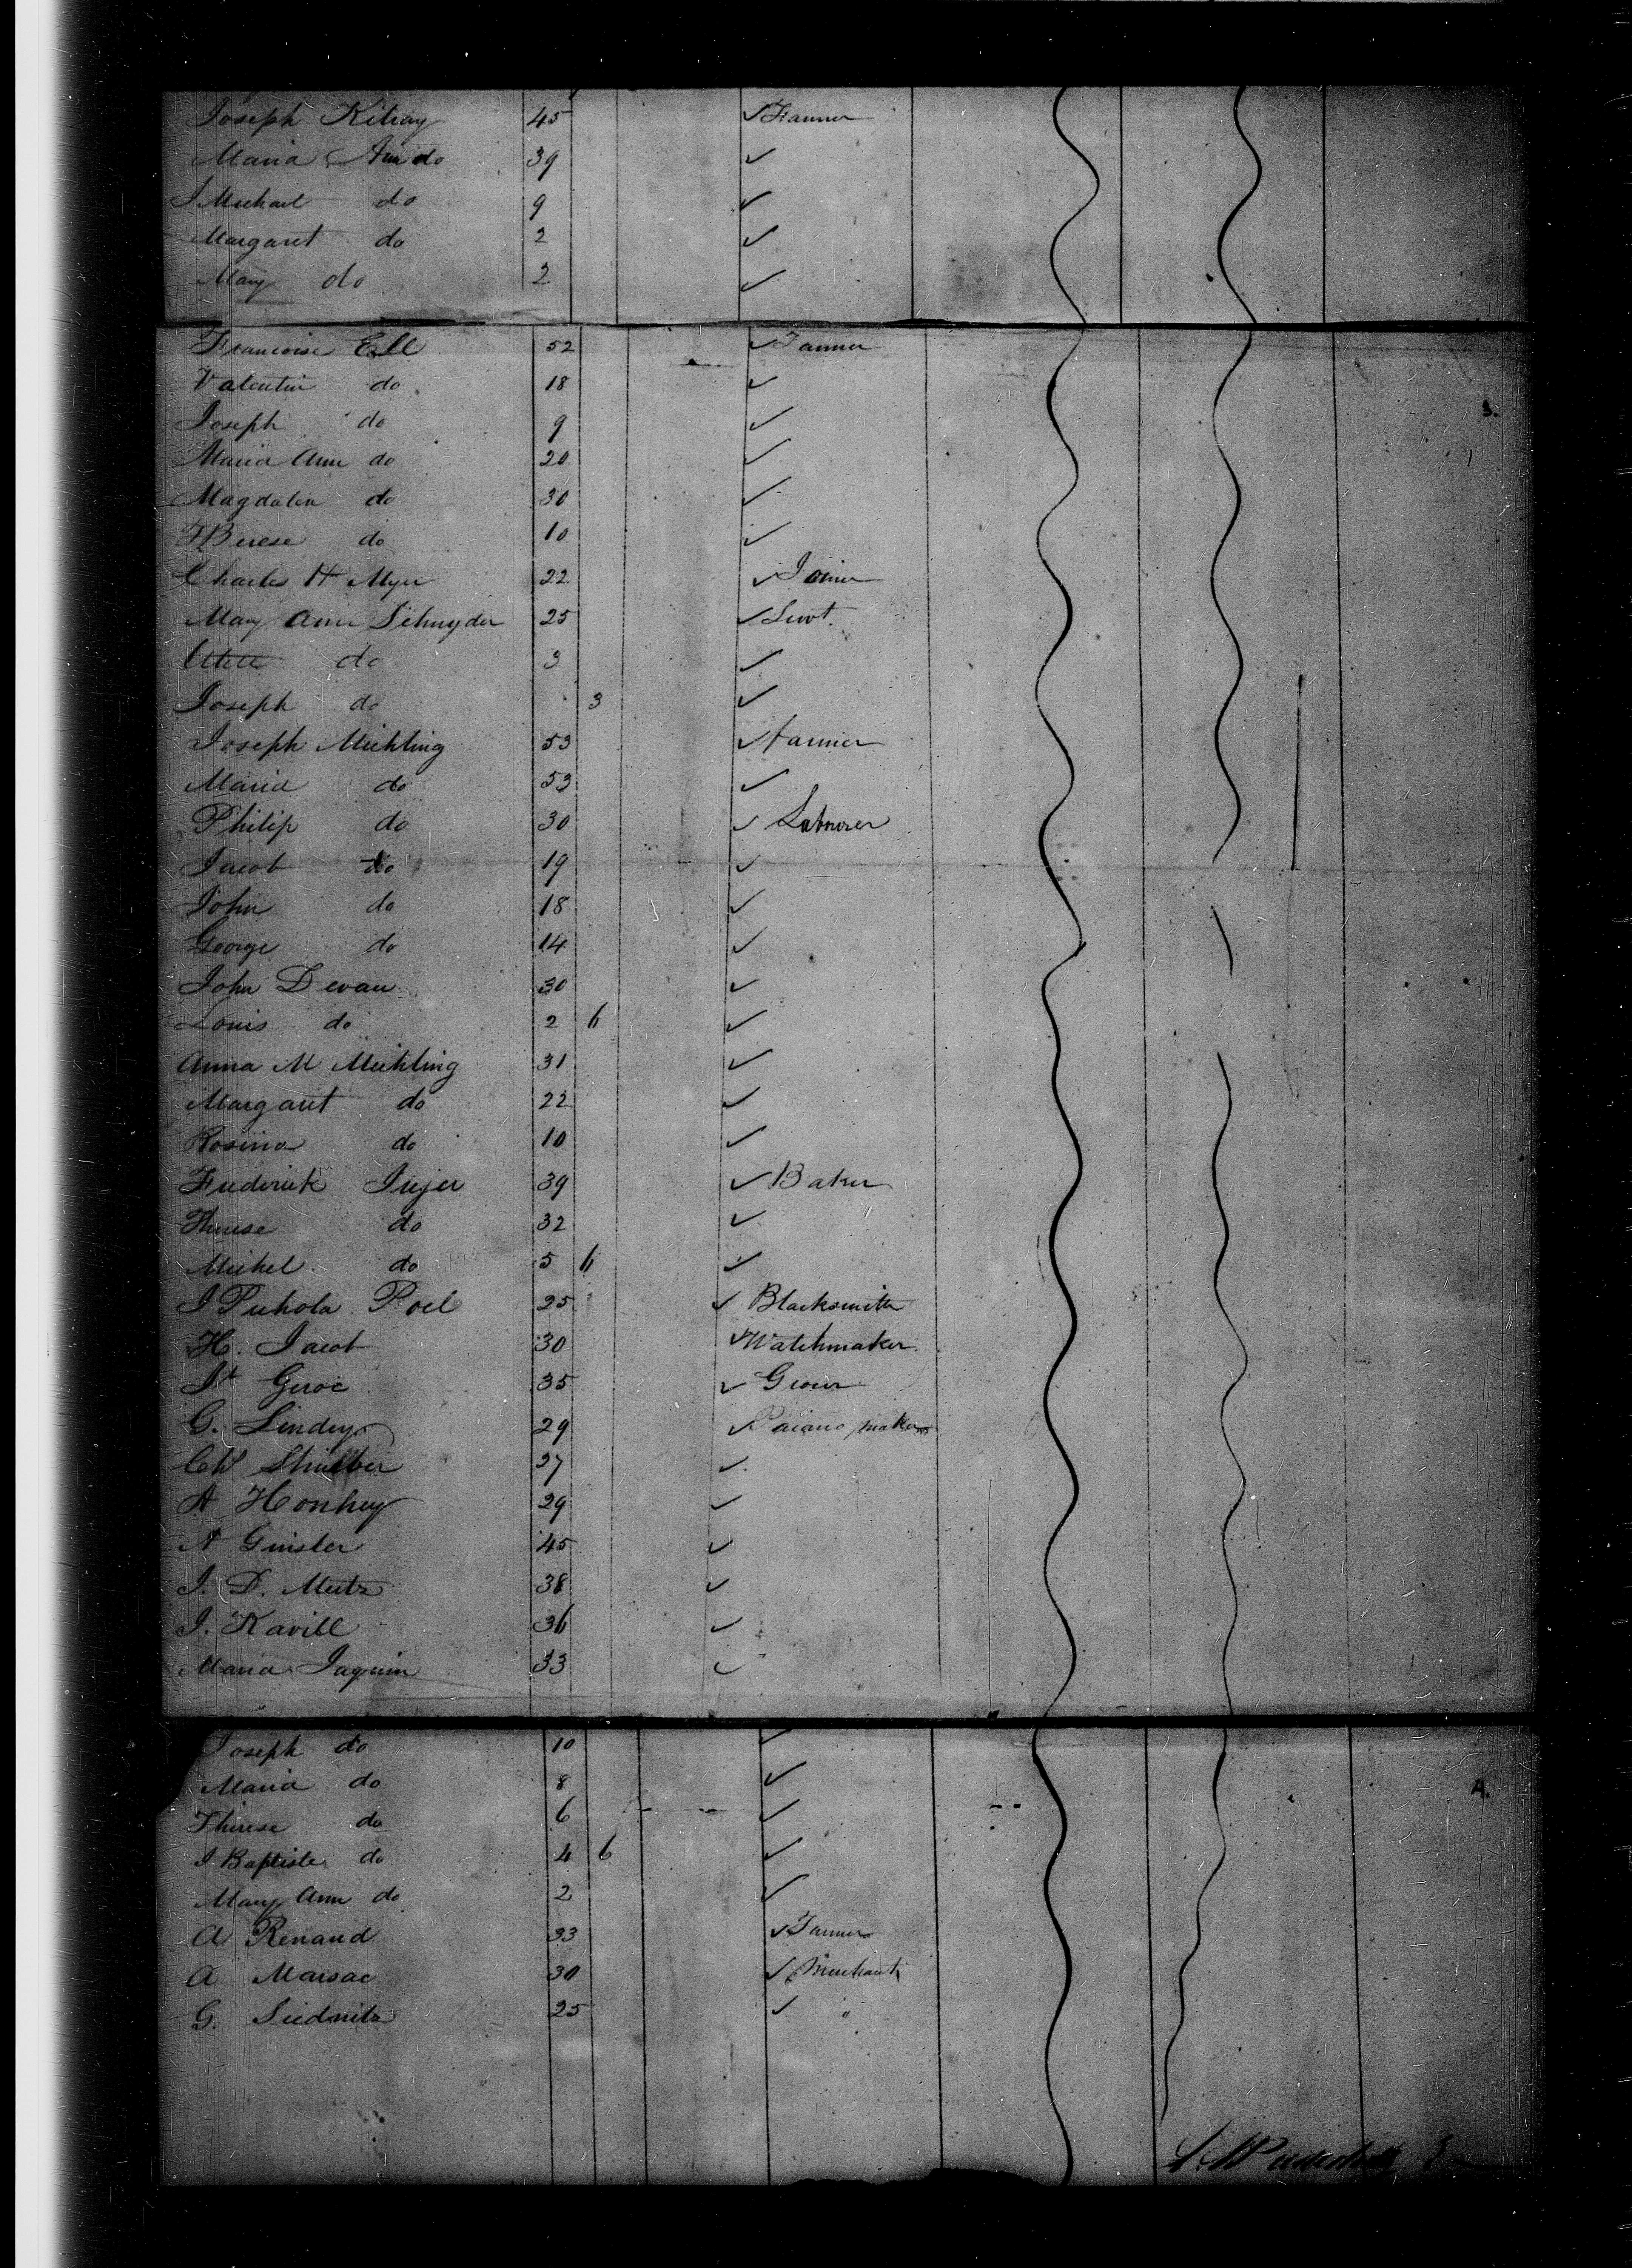 Joseph Kilray 45 ✓ Farmer
Maria Ann do 39 ✓
J Michael do 9 ✓
Margaret do 2 ✓
Mary do 2 ✓
Francoise Ell 52 ✓ Farmer
Valentin do 18 ✓
Joseph do 9 ✓
Maria Ann do 20 ✓
Magdalen do 30 ✓
Therese do 10 ✓
Charles H Myer 22 ✓ Joiner
Mary Ann Schnyder 25 ✓ Servt.
do 3 ✓
Joseph do 3 ✓
Joseph Michling 53 ✓ farmer
Maria do 53 ✓
Philip do 30 ✓ Labourer
Jacob do 19 ✓
John do 18 ✓
George do 14 ✓
John Devan 30 ✓
Louis do 2 6 ✓
Anna M Michling 31 ✓
Margaret do 22 ✓
Rosina do 10 ✓
Frederick Jujer 39 ✓ Baker
Therese do 32 ✓
Michel do 5 6 ✓
J Poel 25 ✓ Blacksmith
H. Jacob 30 ✓ Watchmaker
Jt Geroe 35 ✓ Grocer
G. Lindey 29 ✓ Paiano maker
27 ✓
A Honhey 29 ✓
A Ginster 45 ✓
J. D. Metz 38 ✓
J. Kavill 36 ✓
Maria Jaquin 33 ✓
Joseph do 10 ✓
Maria do 8 ✓
Therese do 6 ✓
J Baptiste do 4 6 ✓
Mary Ann do 2 ✓
A Renaud 33 ✓ Farmer
A Marsac 30 ✓ Merchant
G. Siednitz 25 ✓ "